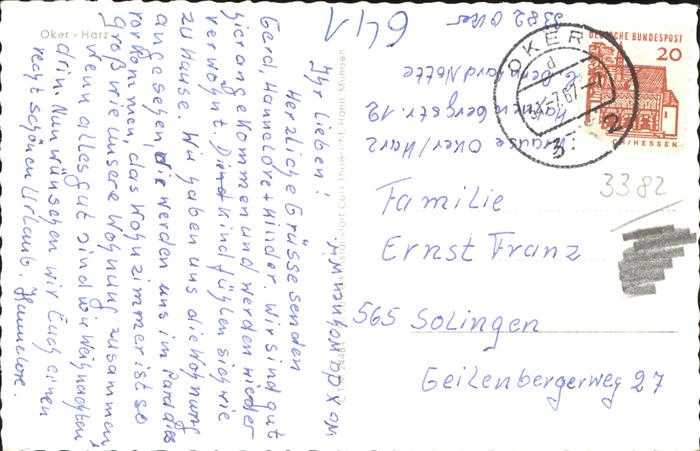 Oker / Harz
641
Ihr Lieben!
Herzliche Grüsse senden
Gerd, Hannelore + Kinder. Wir sind gut
hier angekommen und werden wieder
verwöhnt. Die Kinder fühlen sich wie
zu Hause. Wir haben uns die Wohnung
angesehen, wir werden uns im Paradies
vorkommen, das Wohnzimmer ist so
groß wie unsere Wohnung zusammen,
wenn alles gut sind wir Weihnachten
drin. Nun wünschen wir Euch einen
recht schönen Urlaub. Hannelore.
wohnen
Krause Oker/Harz
3382 Oker
OKER
d
2
DEUTSCHE BUNDESPOST
20
3382
Familie
Ernst Franz
565 Solingen
Geilenbergerweg 27